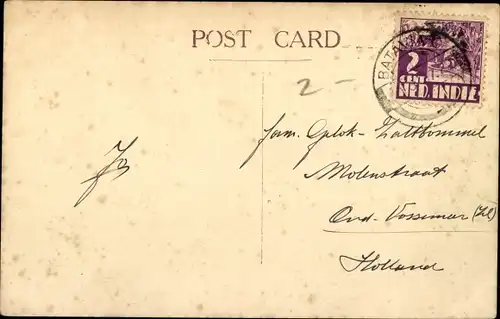 POST CARD
BATAVIA
2
CENT
NED. INDIE
2 -
Jo
Fam. Gplok - Zaltbommel
Molenstraat
Oud-Vossemeer (Zl)
Holland